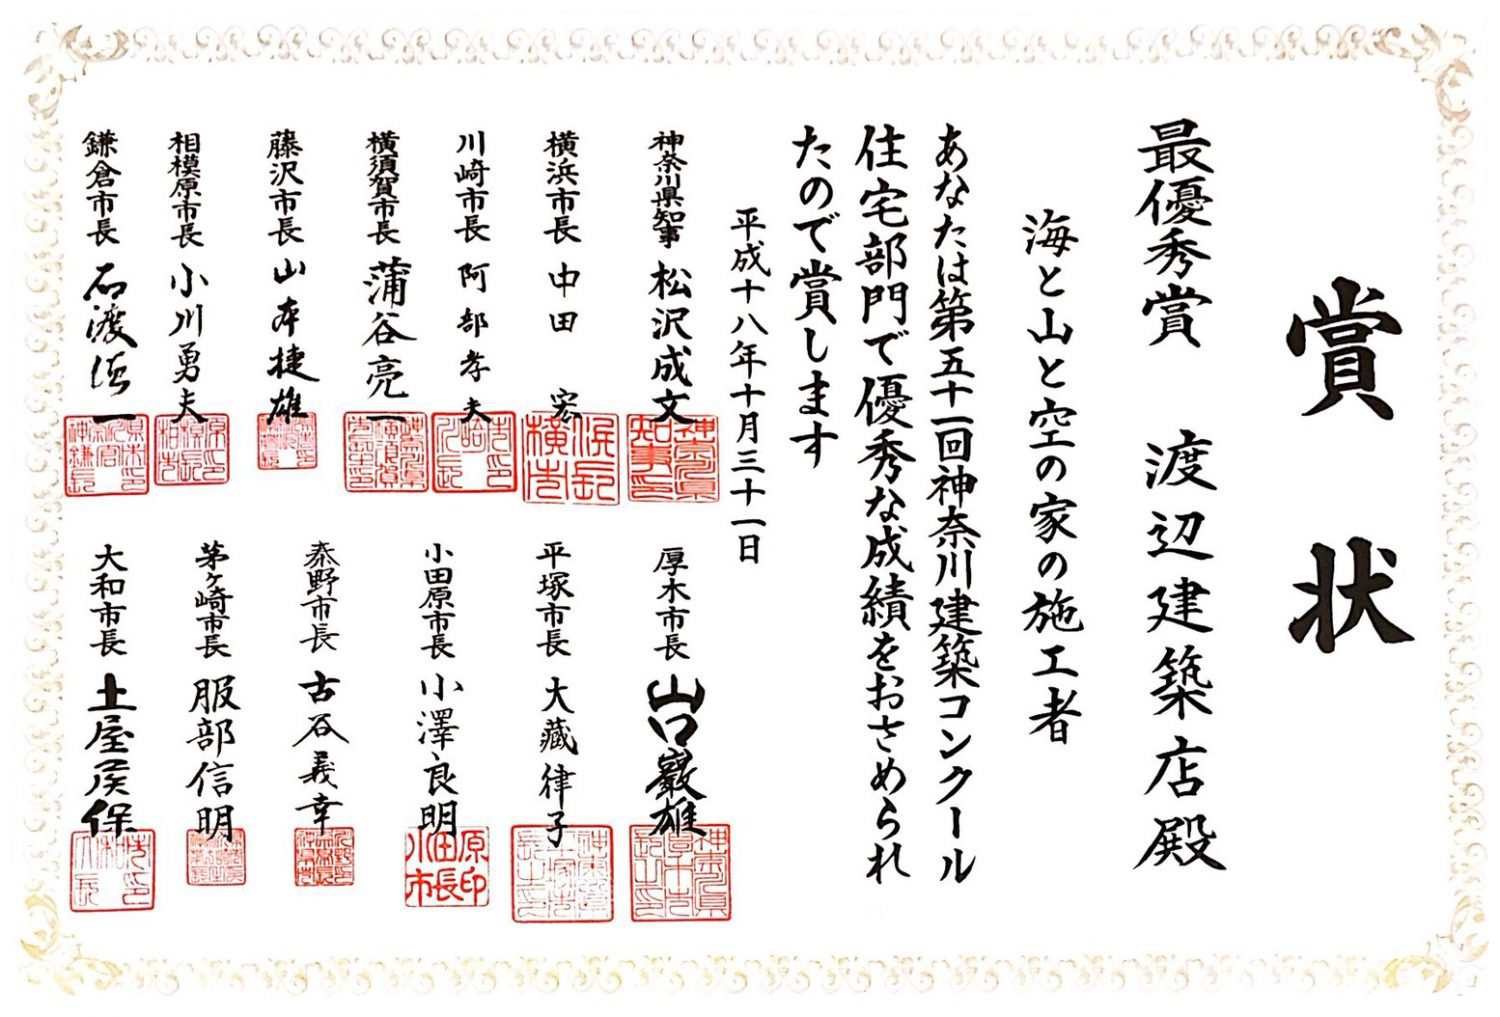 賞状
最優秀賞　渡辺建築店殿
海と山と空の家の施工者
あなたは第五十一回神奈川建築コンクール
住宅部門で優秀な成績をおさめられ
たので賞します
平成十八年十月三十一日
神奈川県知事　松沢成文
横浜市長　中田　宏
川崎市長　阿部孝夫
横須賀市長　蒲谷亮一
藤沢市長　山本捷雄
相模原市長　小川勇夫
鎌倉市長　石渡徳一
厚木市長　山口巖雄
平塚市長　大藏律子
小田原市長　小澤良明
秦野市長　古谷義幸
茅ヶ崎市長　服部信明
大和市長　土屋侯保
小田原市長印